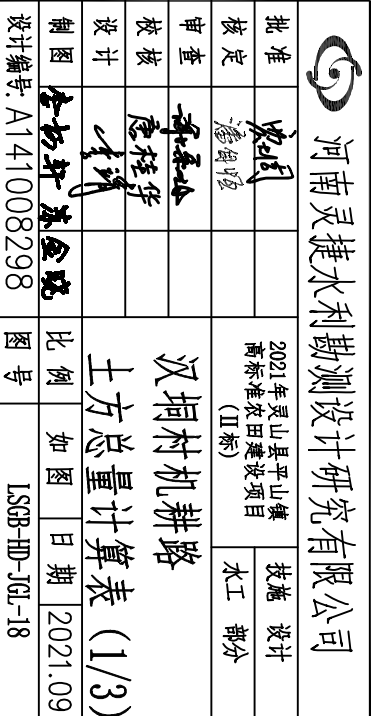 河南灵捷水利勘测设计研究有限公司
批准
核定
审查
校核 唐桂华
设计
制图
设计编号: A141008298
2021年灵山县平山镇
高标准农田建设项目
(Ⅱ标)
技施 设计
水工 部分
汉垌村机耕路
土方总量计算表 (1/3)
比例 如图 日期 2021.09
图号 LSGB-HD-JGL-18